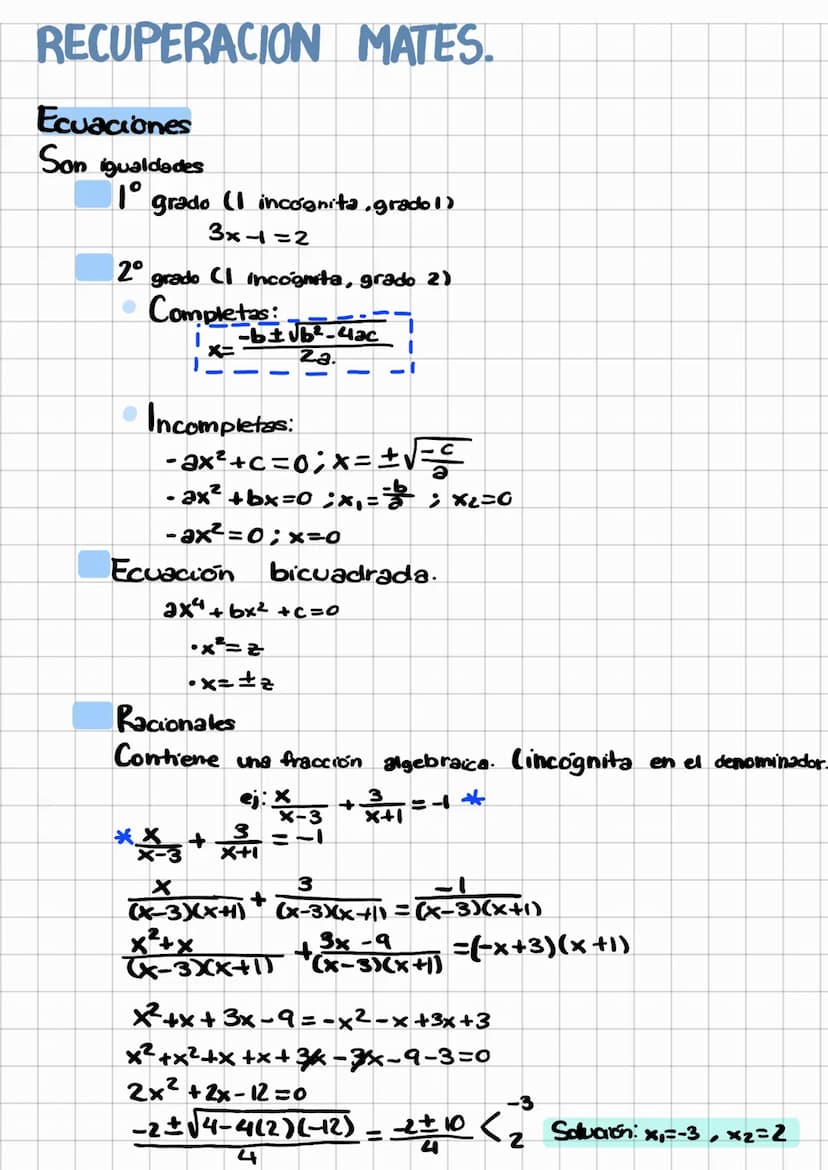 RECUPERACION MATES.
Ecuaciones
Son igualdades
1º grado (1 incógnita, grado 1)
3x-1=2
2º grado (1 incógnita, grado 2)
• Completas:
x= (-b±√(b²-4ac))/(2a).
• Incompletas:
-ax²+c=0; x=±√(-c/a)
-ax²+bx=0; x₁=-b/a; x₂=0
-ax²=0; x=0
Ecuación bicuadrada.
ax⁴+bx²+c=0
•x²=z
•x=±z
Racionales
Contiene una fracción algebraica. (incógnita en el denominador.
ej: x/(x-3) + 3/(x+1) = -1 *
* x/(x-3) + 3/(x+1) = -1
x/((x-3)(x+1)) + 3/((x-3)(x+1)) = -1/((x-3)(x+1))
(x²+x)/((x-3)(x+1)) + (3x-9)/((x-3)(x+1)) =(-x+3)(x+1)
x²+x+3x-9=-x²-x+3x+3
x²+x²+x+x+3x-3x-9-3=0
2x²+2x-12=0
(-2±√(4-4(2)(-12)))/4 = (-2±10)/4 < -3 2 Solución: x₁=-3, x₂=2